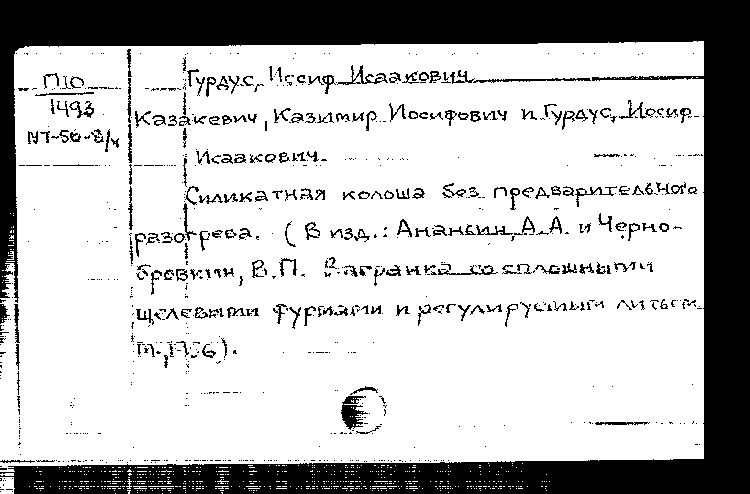 П10
1493
NT-56-8/4
Гурдус, Иосиф Исаакович
Казакевич, Казимир Иосифович и Гурдус, Иосиф
Исаакович.
Силикатная колоша без предварительного
разогрева. (В изд.: Ананьин, А.А. и Черно-
бровкин, В.П. Вагранка со сплошными
щелевыми фурмами и регулируемым дутьем.
М., 1956).